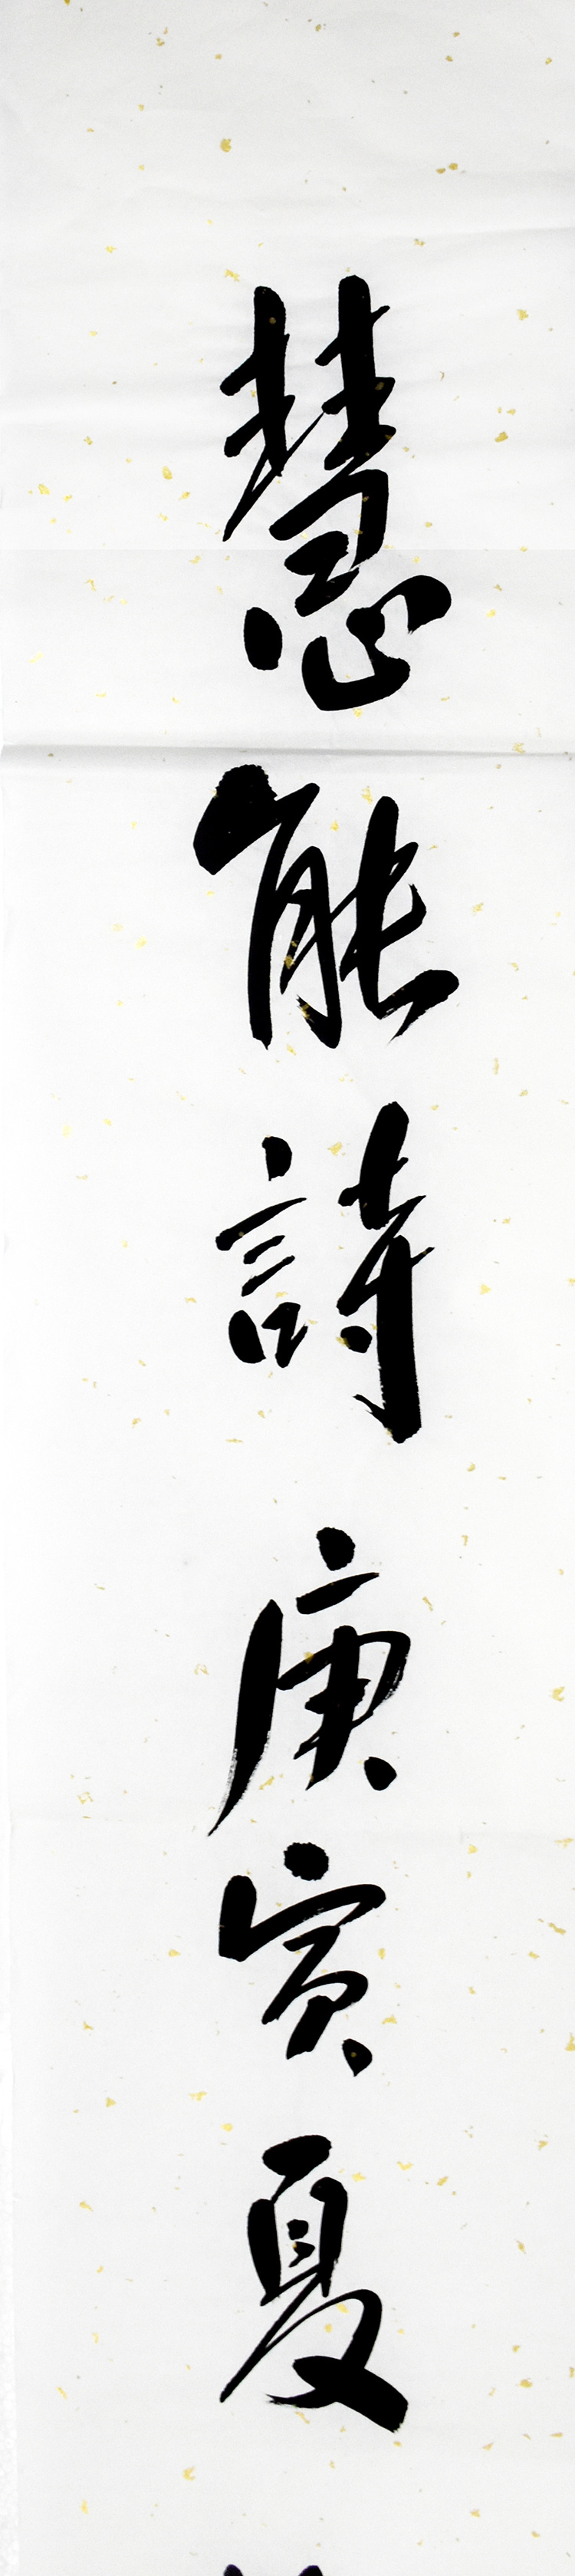 慧能詩庚寅夏